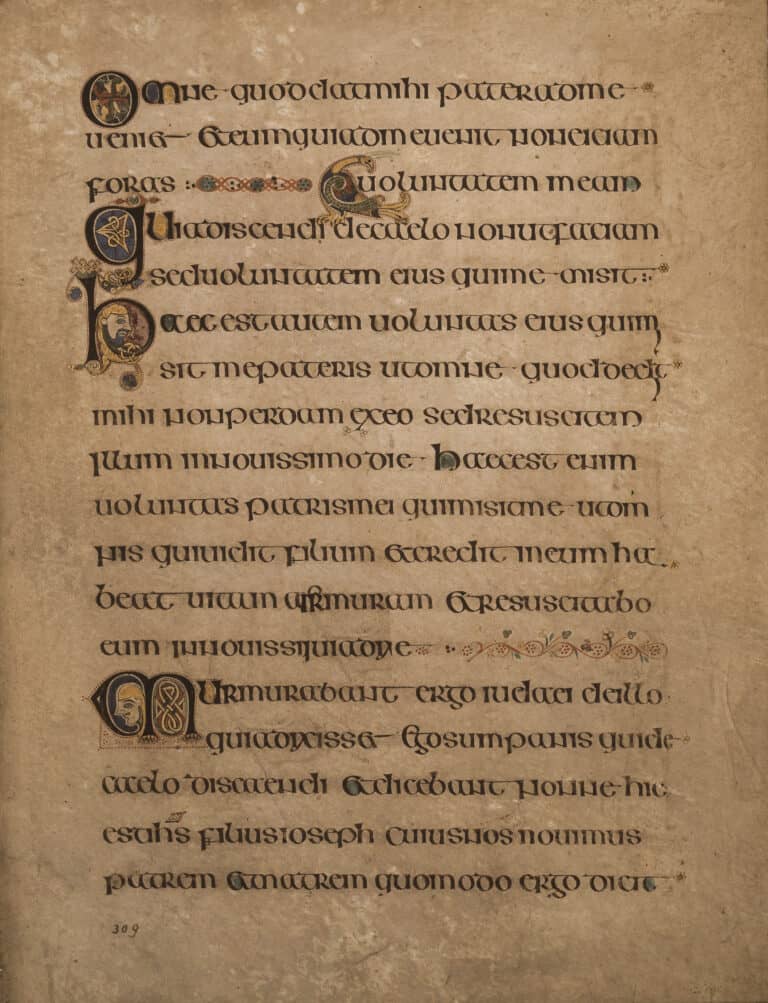 Omne quod dat mihi pater adme
ueniet Et eum qui adme uenit non eiciam
foras :· uoluntatem meam
Quia discendi decaelo non ut faciam
sed uoluntatem eius quime misit :·
haec est autem uoluntas eius quim
sit me pateris ut omne quod dedit
mihi non perdam exeo sed resuscitem
illum innouissimo die · haec est enim
uoluntas patris mei qui misit me ut om
nis qui uidit filium et credit ineum ha
beat uitam et resuscitabo
eum
Murmurabant ergo iudaei deillo
quia dixisset Ego sum panis quide
caelo discendi et dicebant nonne hic
est ihs filius ioseph cuius nos nouimus
patrem et matrem quomodo ergo dicit
309